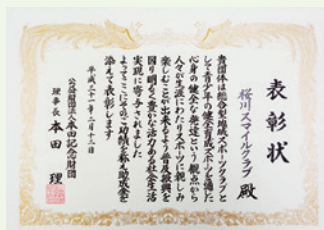 表彰状
桜川スマイルクラブ 殿
貴団体は総合型地域スポーツクラブと
して青少年の健全育成スポーツを通した
心身の健全な発達という観点から
人々が生涯にわたりスポーツに親しみ
楽しむことが出来るよう普及振興を
図り明るく豊かな活力ある社会生活
実現に寄与されました
よってここにその功績を称え助成金を
添えて表彰します
平成三十一年二月十二日
公益財団法人本田記念財団
理事長 本田 理